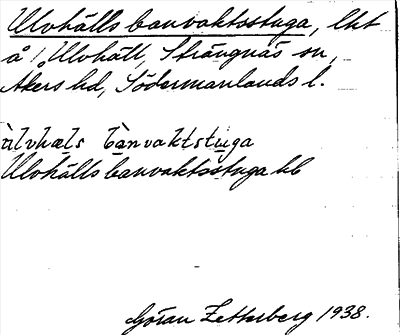 Ulvhälls banvaktsstuga, lht
å Ulvhäll, Strängnäs sn,
Åkers hd, Södermanlands l.
ùlvhæls bànvaktstuga
Ulvhälls banvaktsstuga hb
Göran Zetterberg 1938.